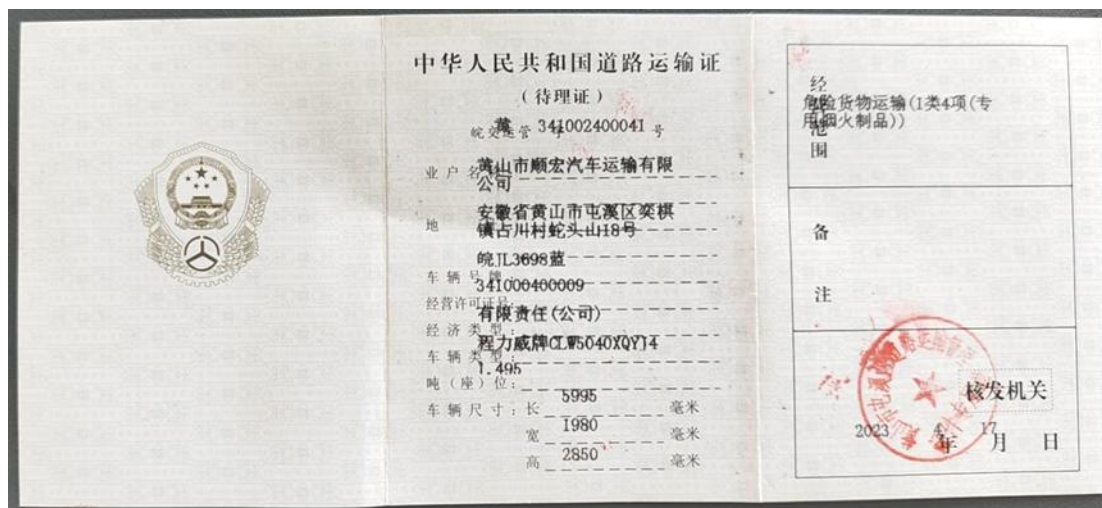 中华人民共和国道路运输证
（待理证）
皖交运管 黄 字 341002400041 号
业户名称：黄山市顺宏汽车运输有限
公司
地 安徽省黄山市屯溪区奕棋
镇占川村蛇头山18号
车辆号牌：皖JL3698蓝
经营许可证号：341000400009
经济类型：有限责任(公司)
车辆类型：程力威牌CLW5040XQYJ4
吨（座）位：1.495
车辆尺寸：长 5995 毫米
宽 1980 毫米
高 2850 毫米
经营范围
危险货物运输(1类4项(专
用烟火制品))
备
注
核发机关
2023 年 4 月 17 日